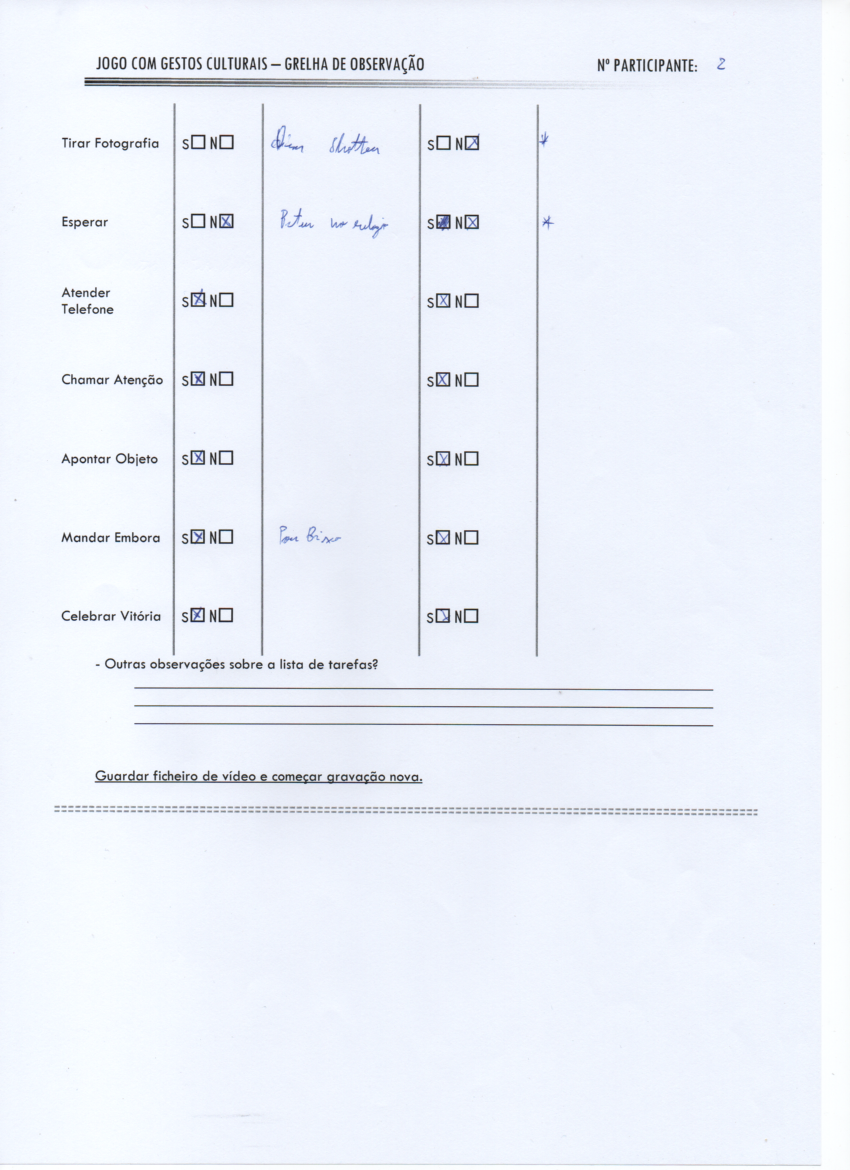 JOGO COM GESTOS CULTURAIS – GRELHA DE OBSERVAÇÃO Nº PARTICIPANTE: 2
Tirar Fotografia S☐ N☐ S☐ N☒ *
Esperar S☐ N☒ no relógio S■ N☒ *
Atender
Telefone S☒ N☐ S☒ N☐
Chamar Atenção S☒ N☐ S☒ N☐
Apontar Objeto S☒ N☐ S☒ N☐
Mandar Embora S☒ N☐ S☒ N☐
Celebrar Vitória S☒ N☐ S☒ N☐
- Outras observações sobre a lista de tarefas?
Guardar ficheiro de vídeo e começar gravação nova.